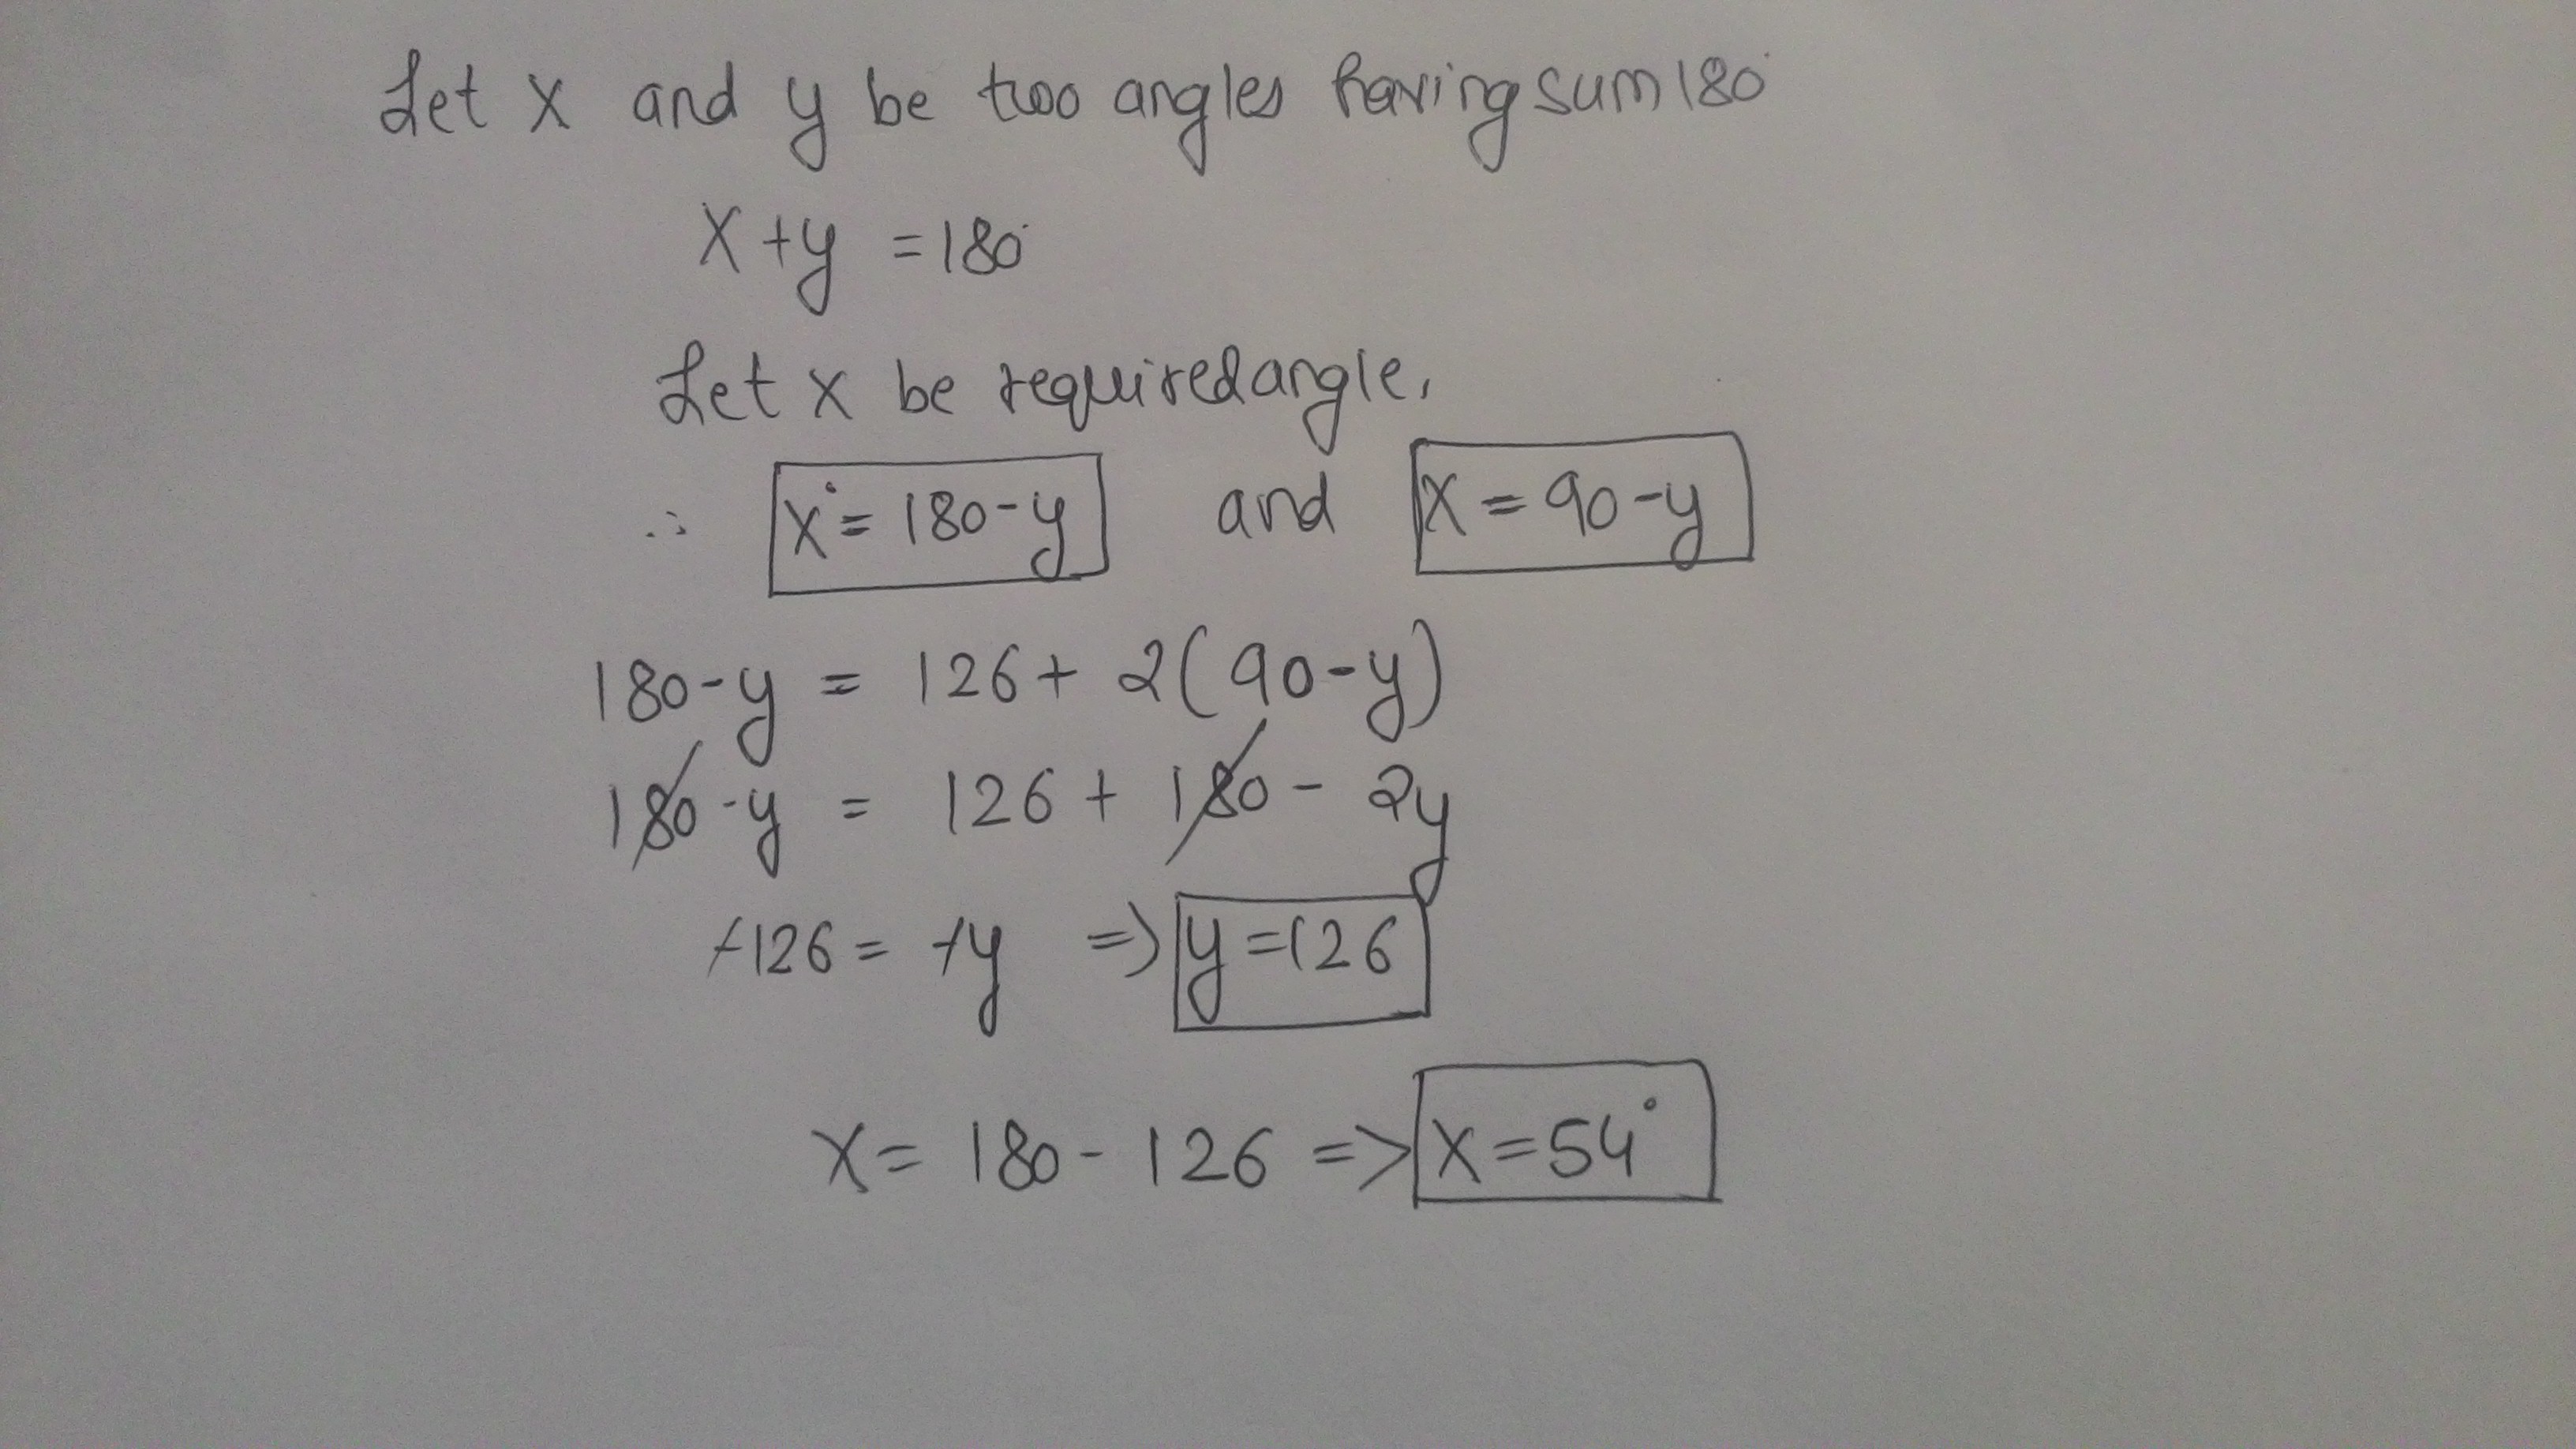 Let x and y be two angles having sum 180°
x + y = 180°
Let x be required angle.
∴ x° = 180 - y and x = 90 - y
180 - y = 126 + 2(90 - y)
180 - y = 126 + 180 - 2y
+126 = +y => y = 126
x = 180 - 126 => x = 54°